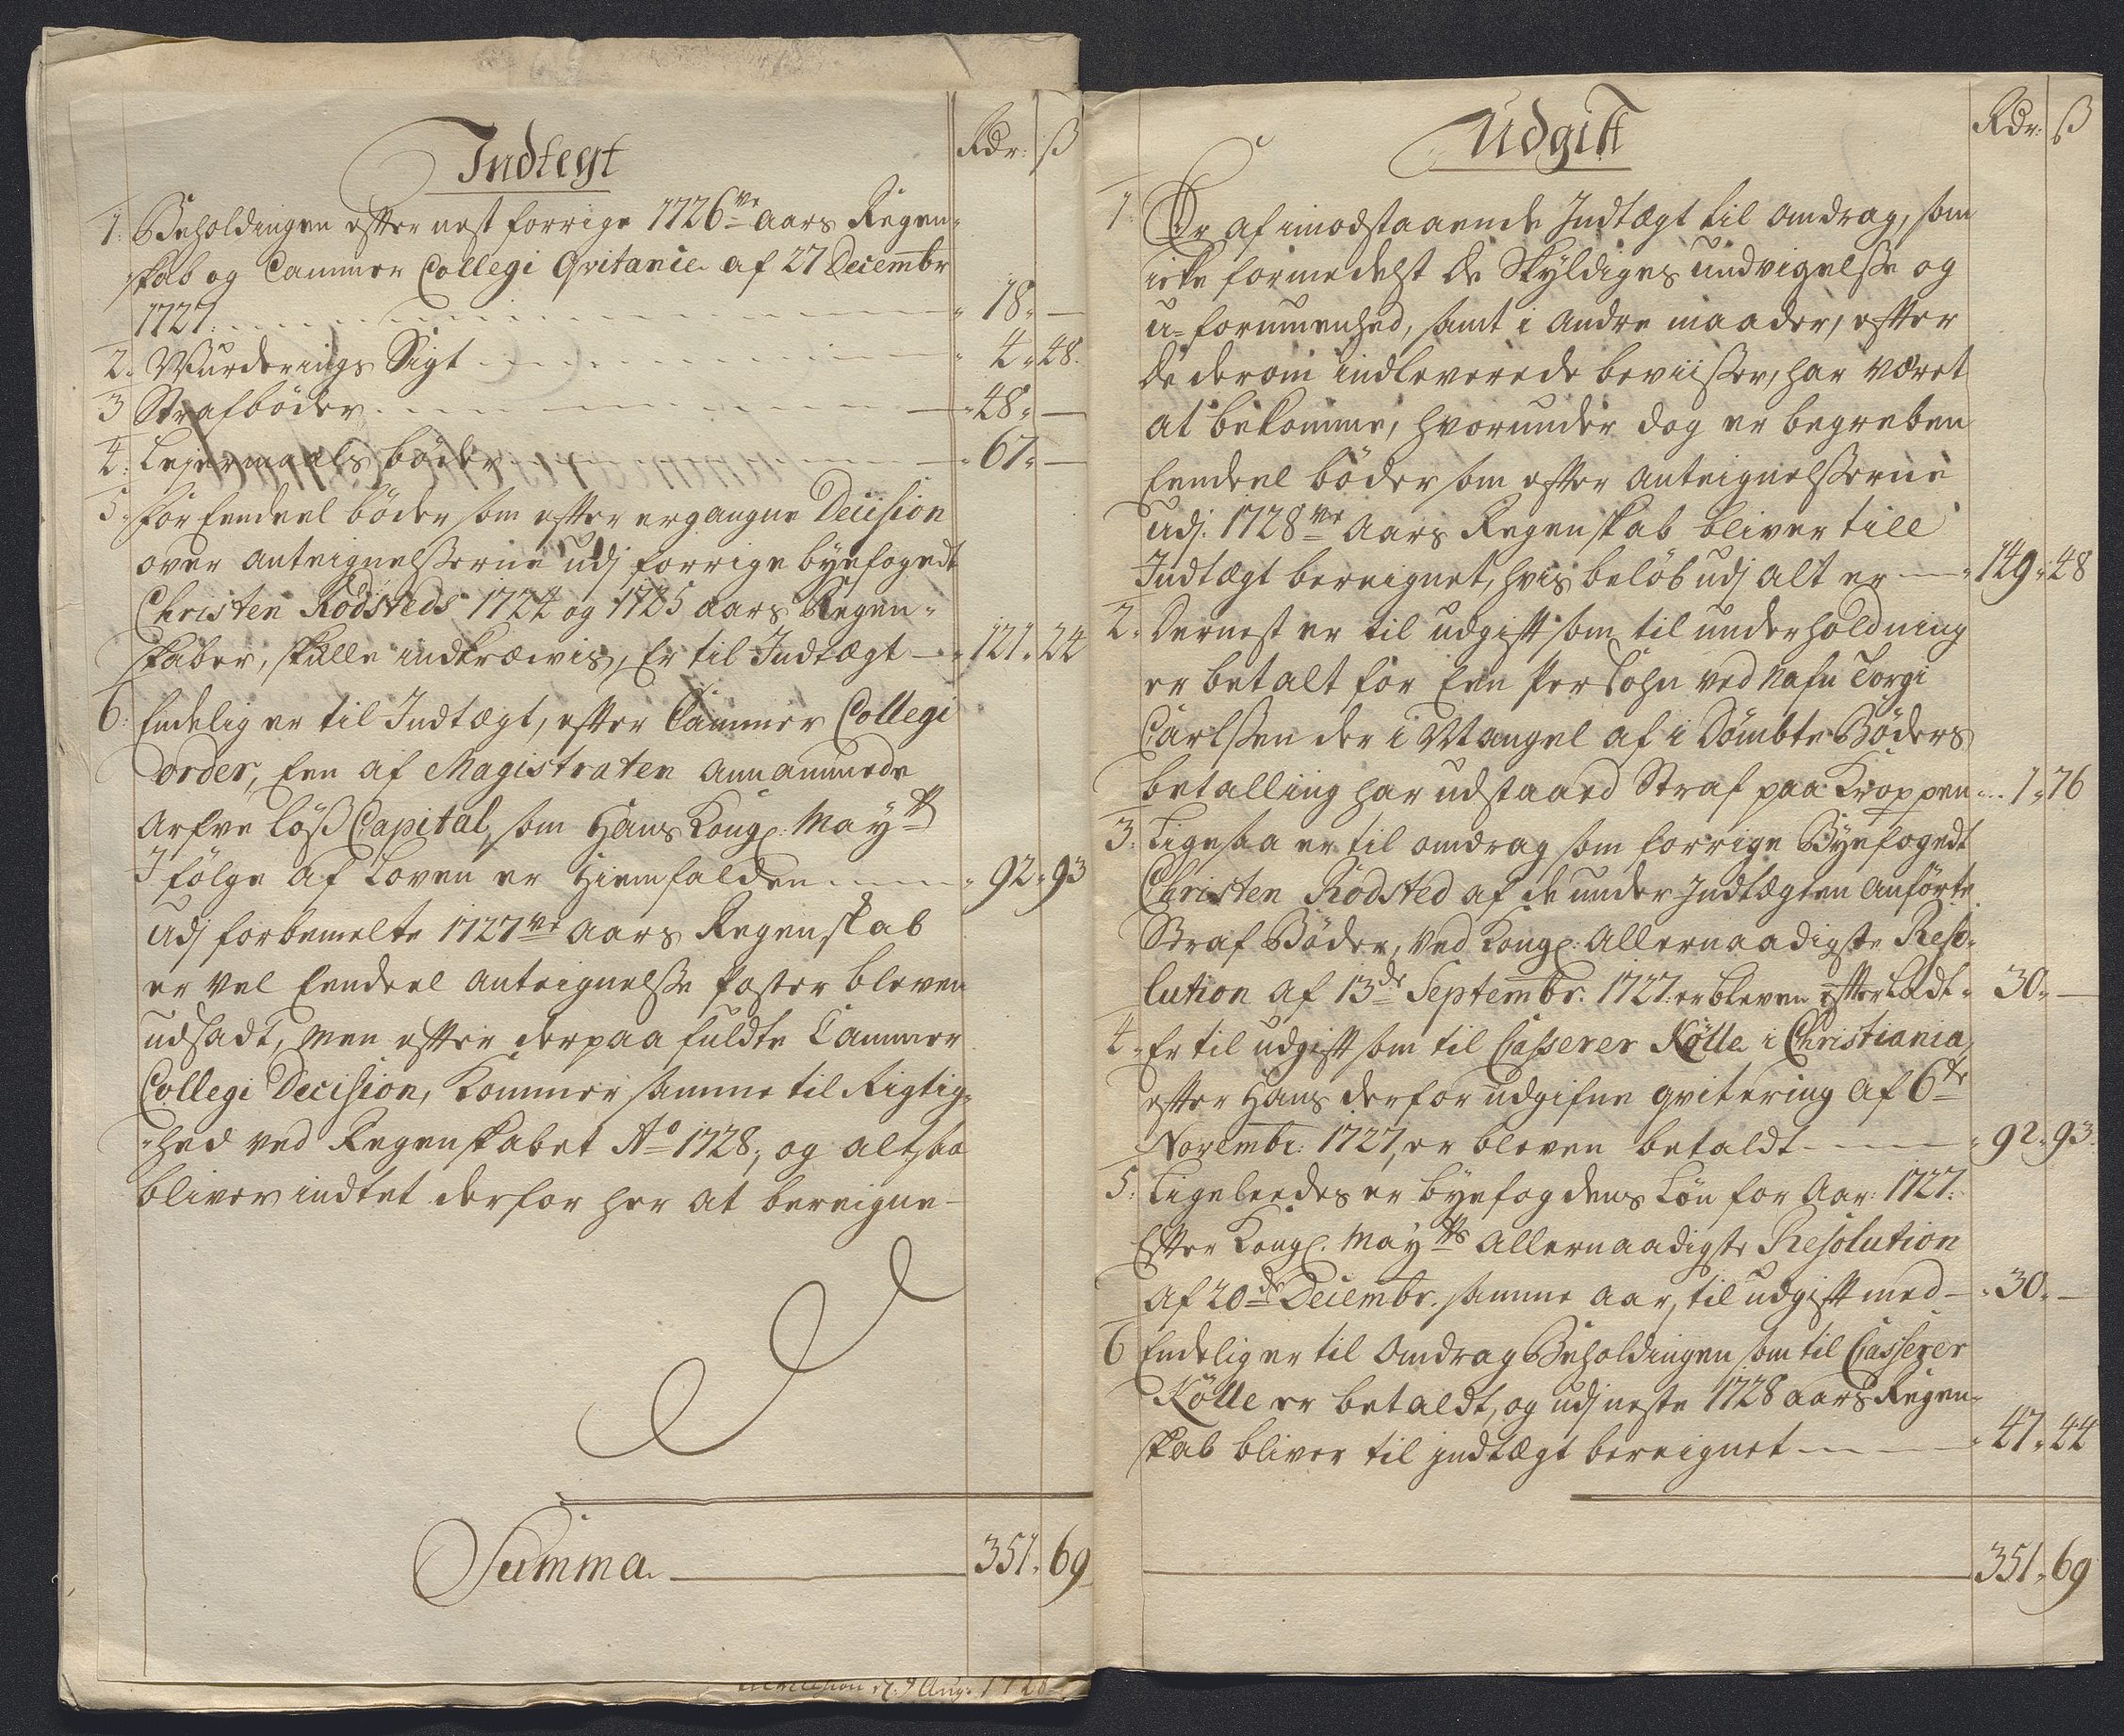 Indtegt
Rdr: ß
1. Beholdingen efter nest forrige 1726ve Aars Regen-
skab og Cammer Collegi Qvitanie af 27 Decembr
1727. 18 „ —
2. Wurderings Sigt 4 „ 48.
3 Strafböder 48 „ —
4. Lejermaals böder 67 „ —
5. for Eendeel böder som efter ergangne Decision
over Anteignelsserne udj forrige byefogedt
Christen Rödsteds 1724 og 1725 aars Regen-
skaber, skulle indkræwis, Er til Indtægt 121 „ 24
6. Endelig er til Indtægt, efter Cammer Collegi
order, Een af Magistraten Annammede
Arfve löß Capital, som Hans Kongl. Maytt
I fölge af Loven er Hiemfalden 92 „ 93
Udj forbemelte 1727ve Aars Regenskab
er vel Eendeel Anteignelsse poster bleven
udsadt, men efter derpaa fuldte Cammer
Collegi Decision, Kommer samme til Rigtig-
-hed ved Regenskabet Ao 1728, og altsaa
bliver indtet derfor her at bereigne-
Summa. 351 „ 69
17. 9 Aug: 1728
Udgift
Rdr: ß
1. Er af imodstaaende Indtægt til Andrag, som
icke formedelst de Skyldiges undvigelsse og
u-formuenhed, samt i Andre maader, efter
de derom indleverede beviisser, har været
at bekomme, hvorunder dog er begreben
Eendeel böder som efter Anteignelsserne
udj. 1728ve Aars Regenskab bliver till
Indtægt bereignet, hvis beløb udj alt er 149 „ 48
2. Dernest er til udgift som til underholdning
er betalt for Een Persohn ved Nafn Torgi
Carlssen der i Mangel af i Dömbte Böders
betalling har udstaaed Straf paa Kroppen 1 „ 76
3. Ligesaa er til omdrag som forrige Byefogedt
Christen Rödsted af de under Indtægten Anförte
Straf Böder, ved Kongl: Allernaadigste Reso-
lution af 13de Septembr: 1727: er bleven efterladt 30 „ —
4. Er til udgift som til Casserer Kölle i Christiania
efter Hans derfor udgifne qvitering af 6te
Novembr: 1727, er bleven betaldt 92 „ 93.
5. Ligeleedes er byefogdens Lön for Aar: 1727:
Efter Kongl. Maytts Allernaadigste Resolution
af 20de Decembr. samme Aar, til udgift med 30 „ —
6 Endelig er til Omdrag Beholdingen som til Casserer
Kölle er betaldt, og udj neste 1728 aars Regen-
skab bliver til jndtægt bereignet 47 „ 44
351 „ 69